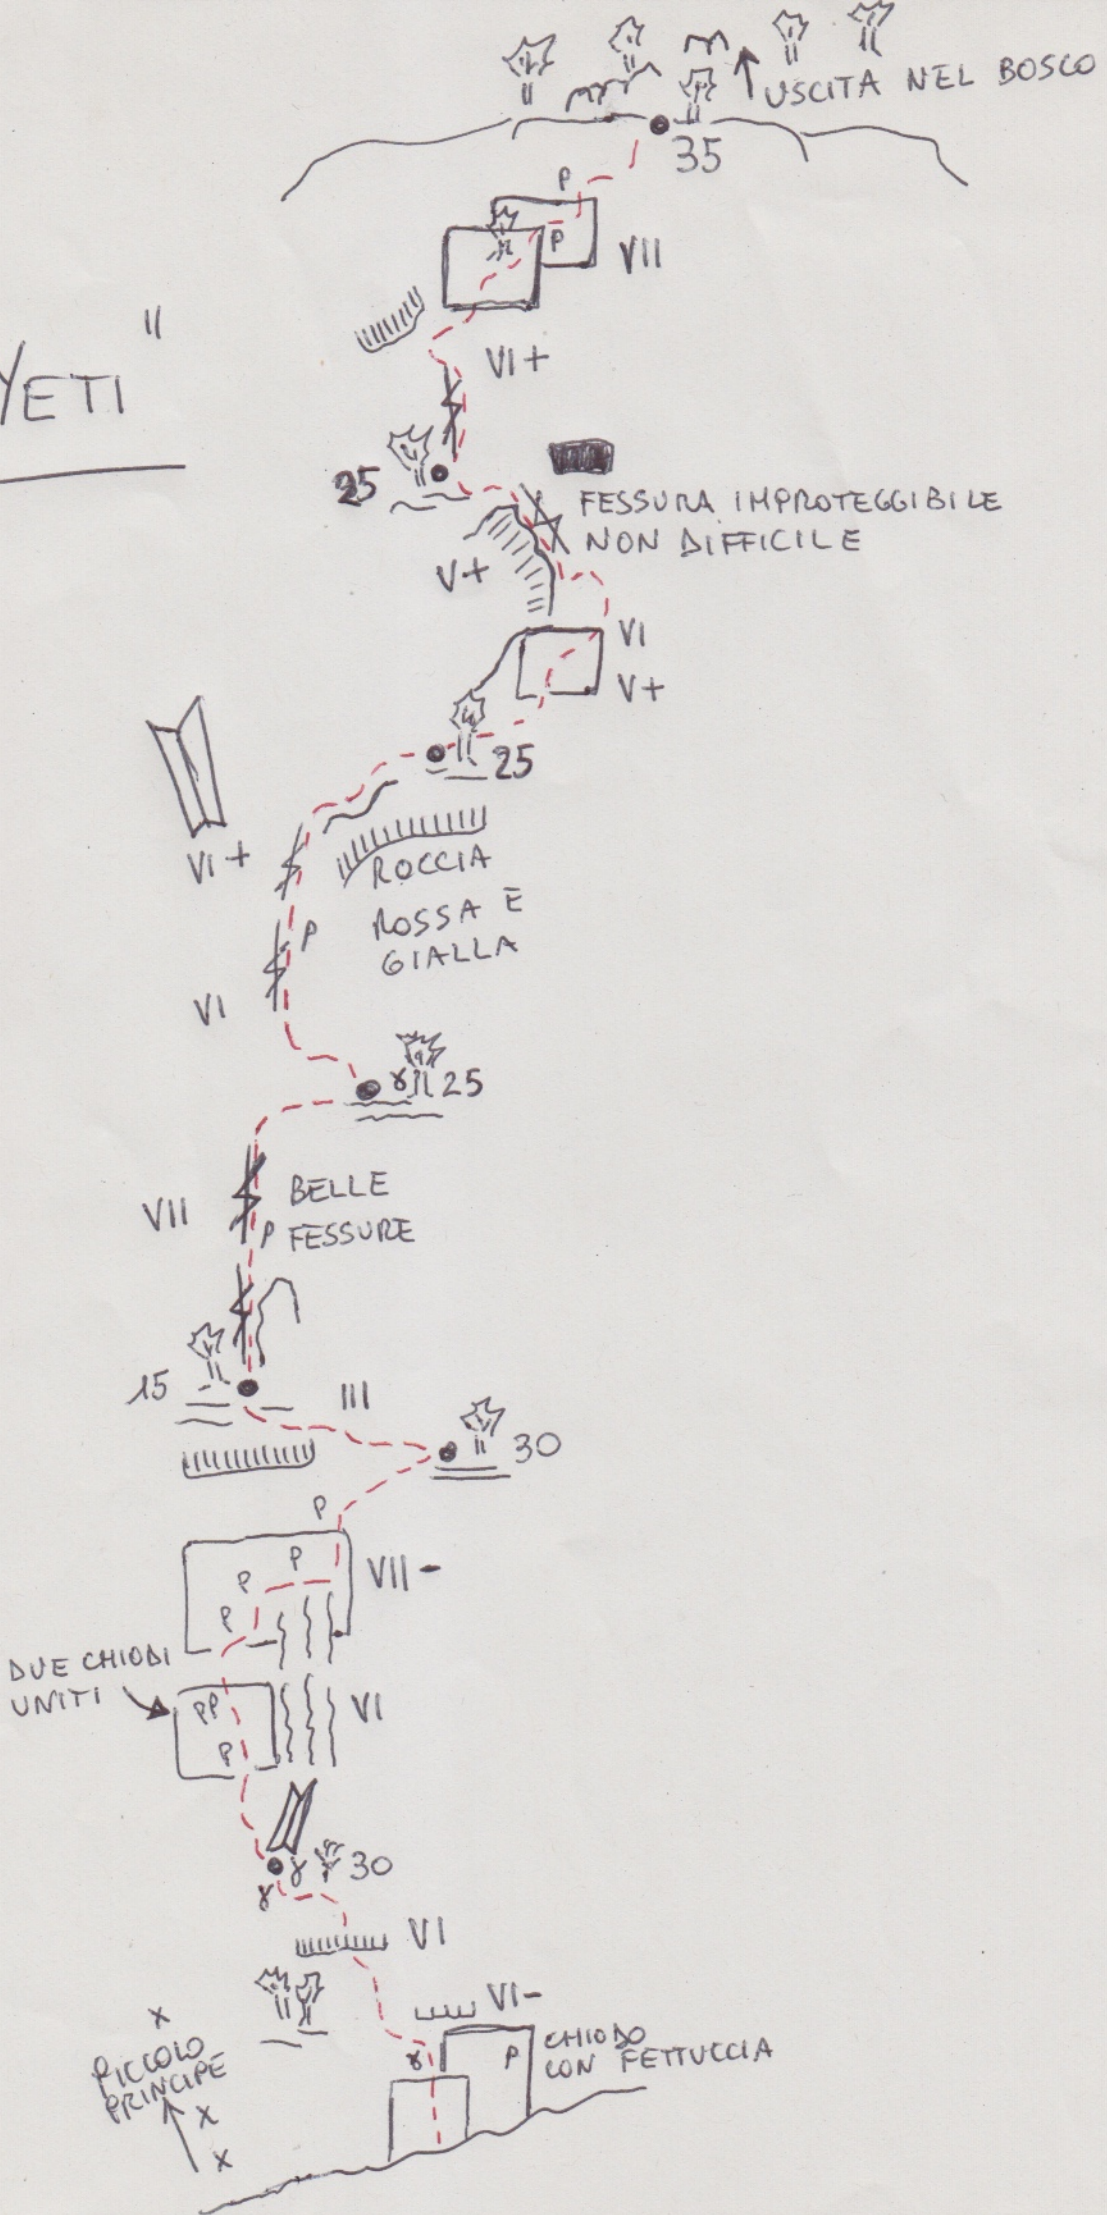 USCITA NEL BOSCO
35
P
P
VII
"
YETI
VI+
25
FESSURA IMPROTEGGIBILE
NON DIFFICILE
V+
VI
V+
25
VI+
ROCCIA
ROSSA E
GIALLA
P
VI
25
VII
BELLE
P FESSURE
15
III
30
P
VII-
P
P
P
DUE CHIODI
UNITI
PP
VI
P
30
VI
VI-
CHIODO
P CON FETTUCCIA
X
PICCOLO
PRINCIPE
X
X